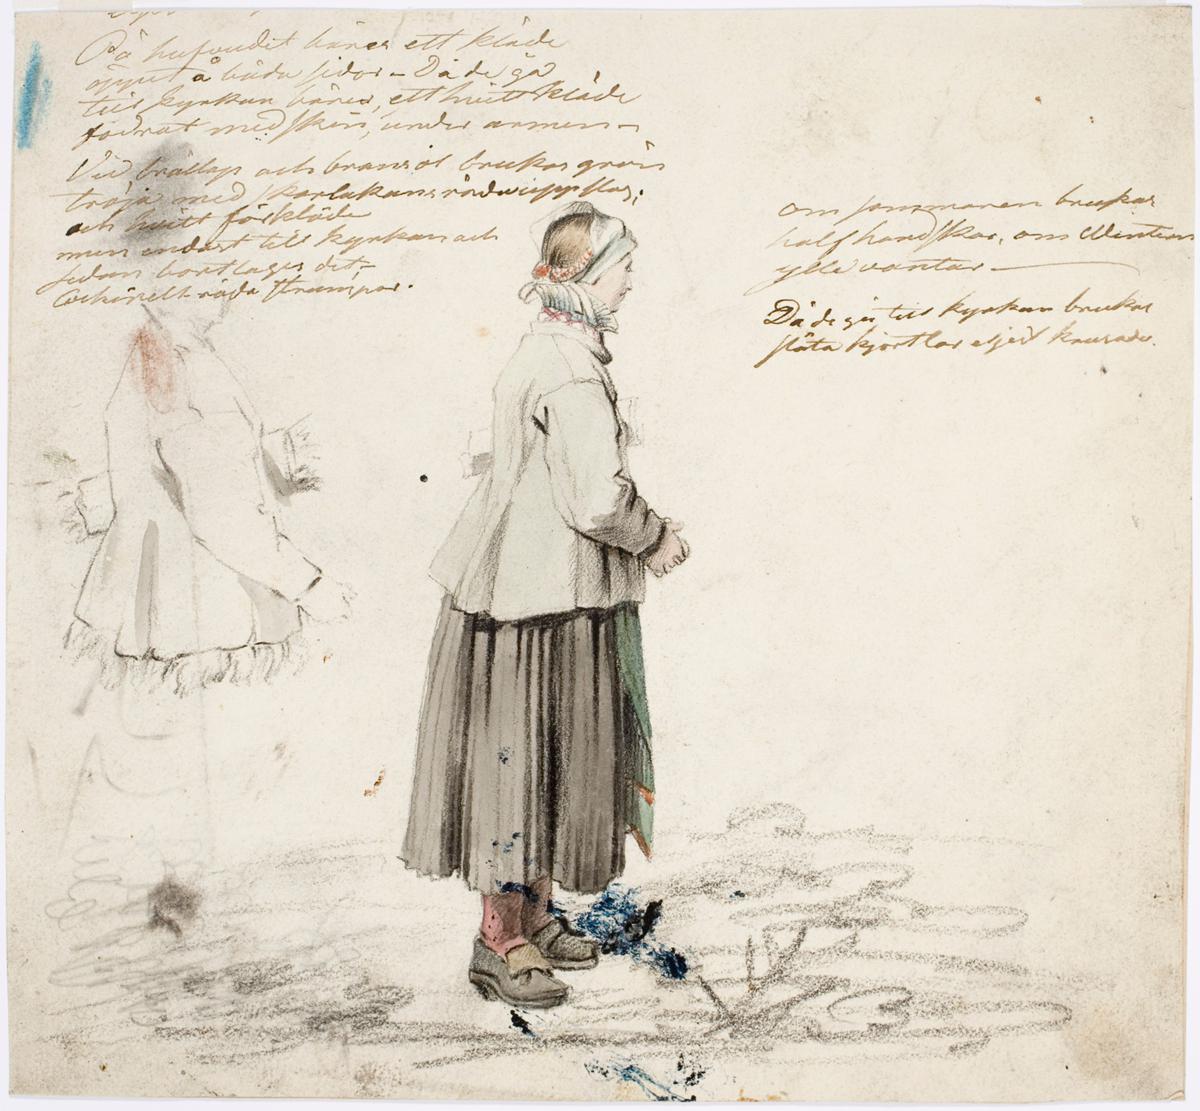 På hufvudet bäres ett kläde
öppet å båda sidor – Då de gå
till kyrkan bäres, ett hvitt kläde
fodrat med skin, under armen –
Vid bröllop och brudsöl brukas grön
tröja med skarlakans röda uppslag;
och hvitt förkläde
men endast till kyrkan och
sedan borttages det,
Cochinell-röda strumpor.
om sommaren brukas
halfhandskar, om Wintern
ylle vantar –
Då de gå till kyrkan brukas
släta kjortlar ej